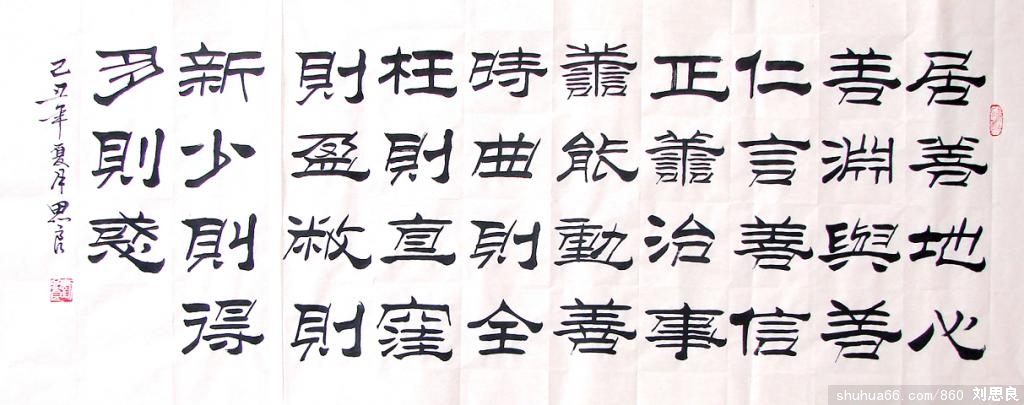 居善地心
善淵與善
仁言善信
正善治事
善能動善
時曲則全
枉則直窪
則盈敝則
新少則得
多則惑
己丑年夏月思良
shuhua66.com/860 刘思良